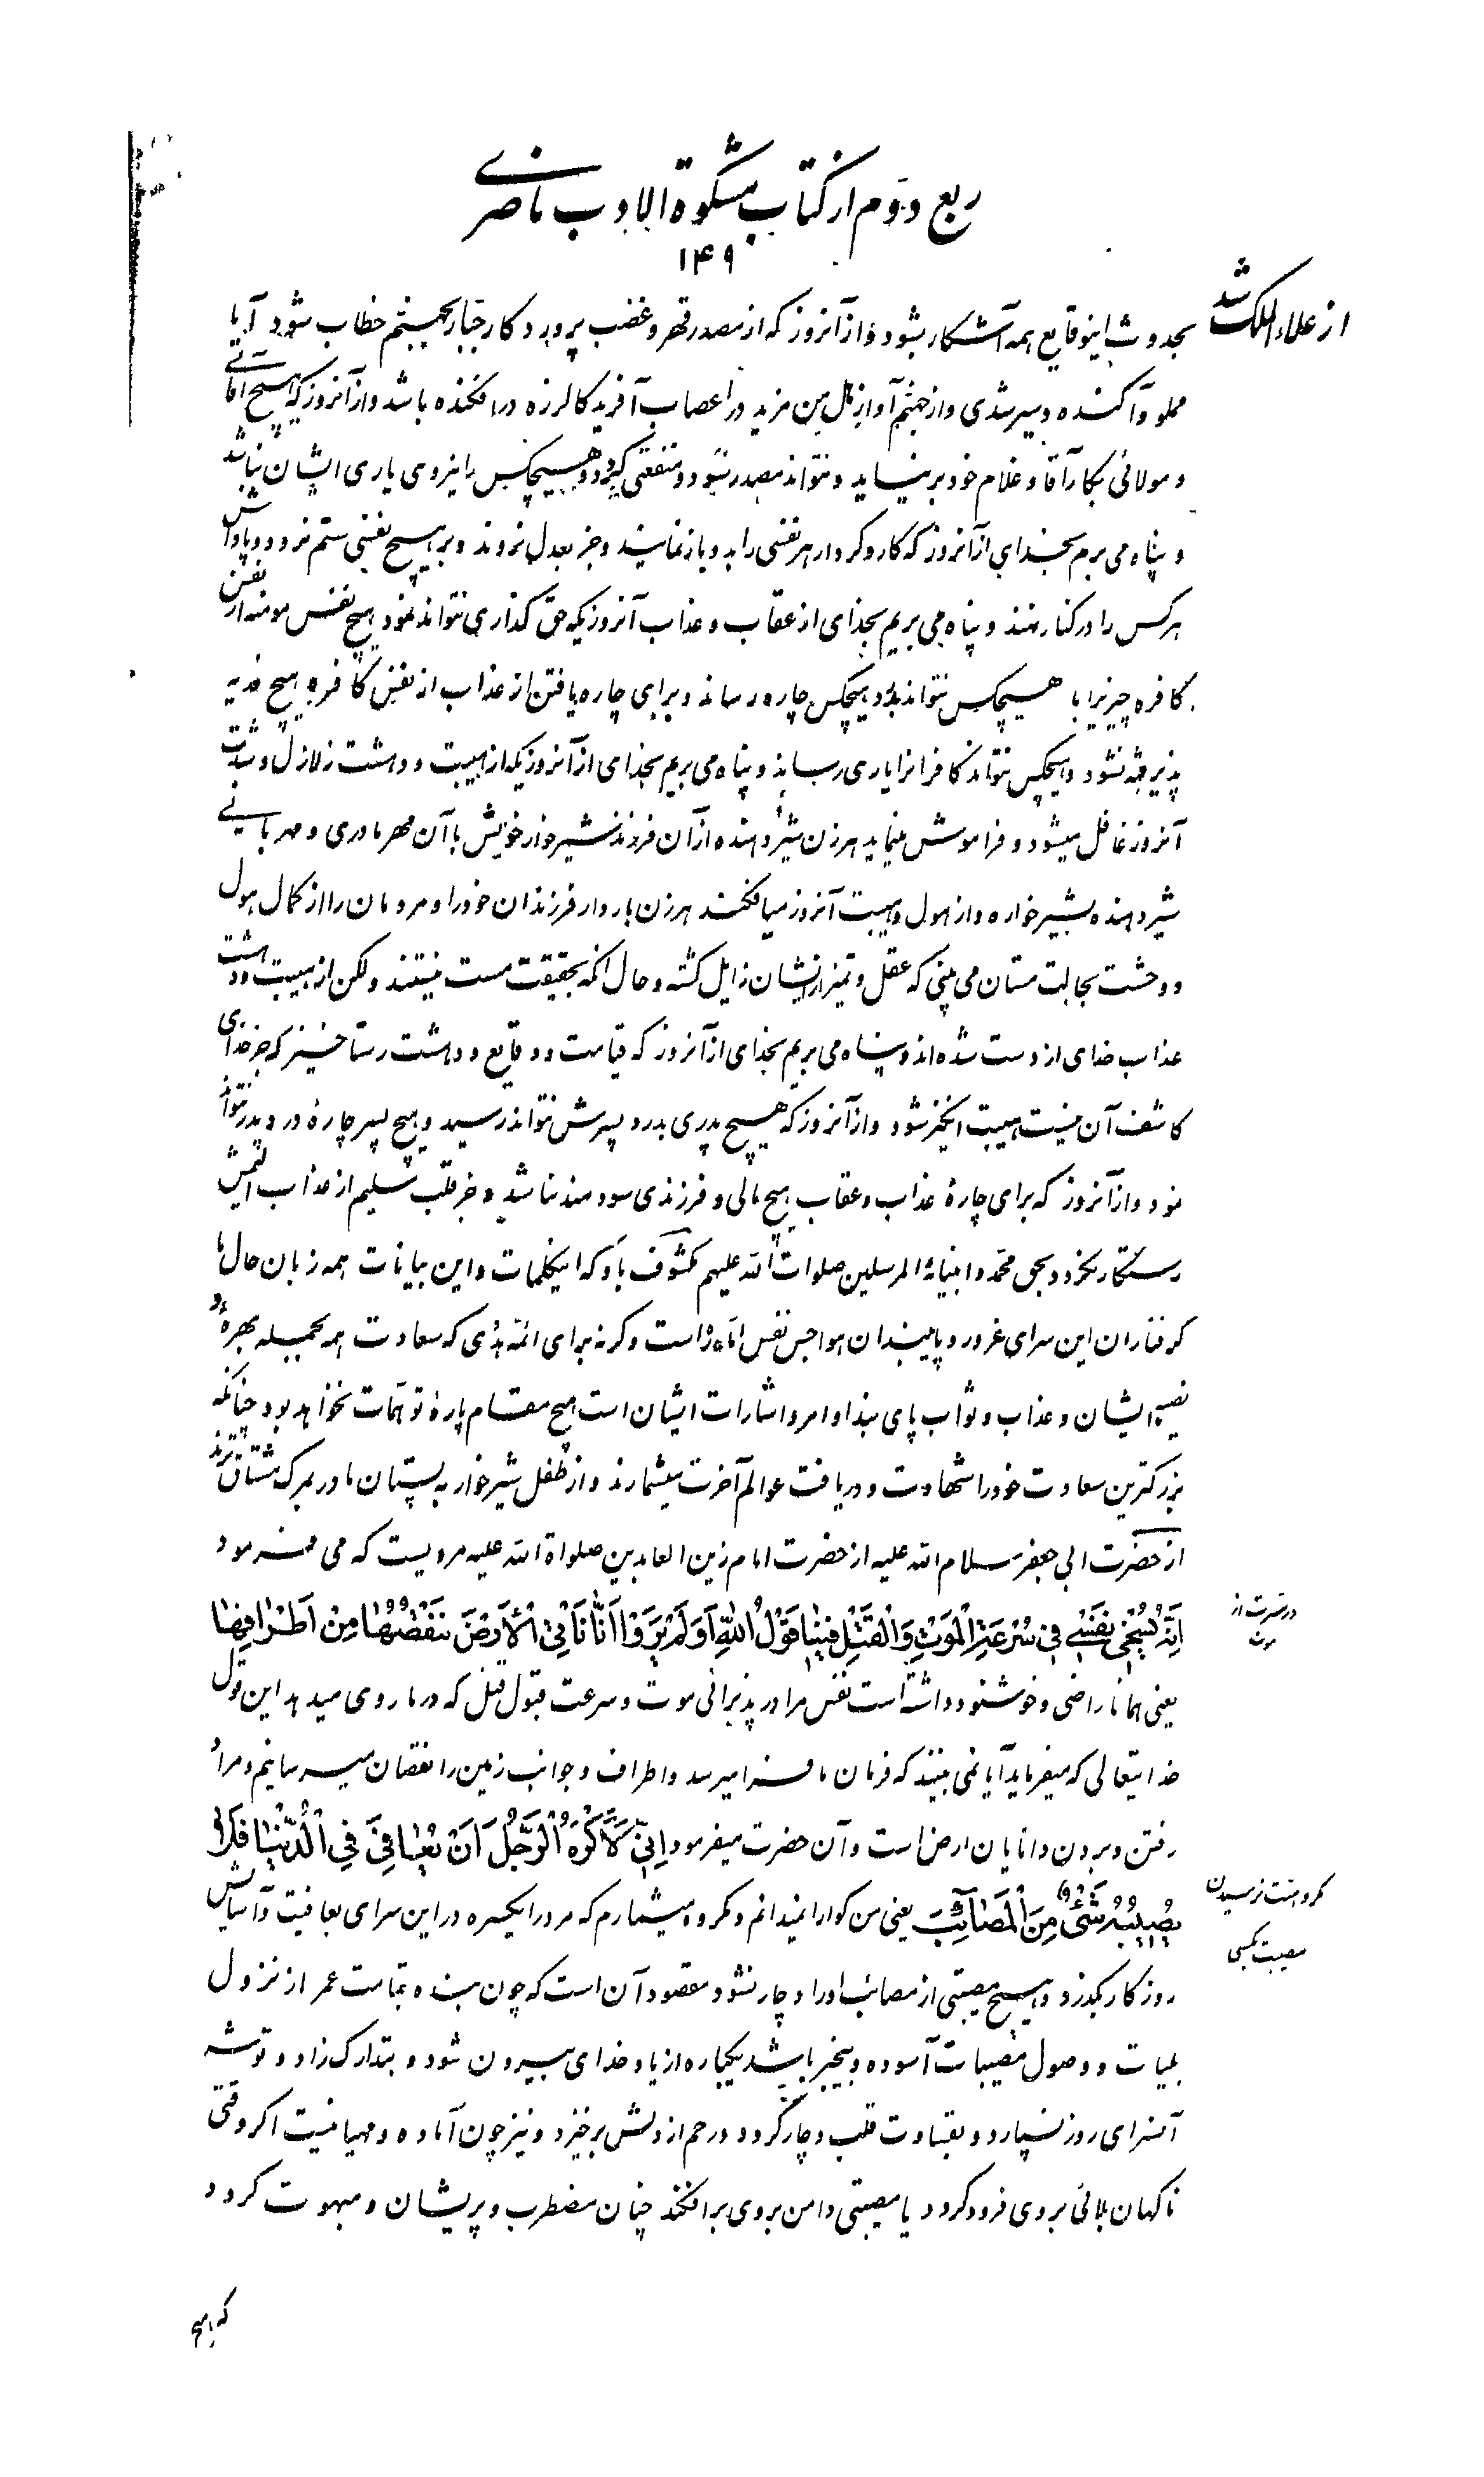 ربع دوم از کتاب مشکوة الادب ناصری
۱۴۹
بحدوث اینوقایع همه آشکار بشود و از آنروز که از مصدر قهر و غضب پروردکار جبار بجهنم خطاب شود آیا
مملو و آکنده و سیر شدی و از جهنم آواز هل من مزید در اعصاب آفریدکا لرزه در افکنده باشد و از آنروز که هیچ آقائی
و مولائی بکار آقا و غلام خود بر نیاید و نتواند مصدر سود و منفعتی کردد و هیچکس را نیروی یاری ایشان نباشد
و پناه می برم بخدای از آنروز که کار و کردار هر نفسی را بدو باز نمایند و جز بعدل نروند و بر هیچ نفسی ستم نرود و پاداش
هر کس را در کنار نهند و پناه می بریم بخدای از عقاب و عذاب آنروزیکه حق کذاری نتواند نمود هیچ نفس مومنه از نفس
کافره چیزیرا یا هیچکس نتواند بدرد هیچکس چاره رساند و برای چاره یافتن از عذاب از نفس کافره هیچ فدیه
پذیرفته نشود و هیچکس نتواند کافرانرا یاری رساند و پناه می بریم بخدای از آنروزیکه از هیبت و دهشت زلازل و شدت
آنروز غافل میشود و فراموش مینماید هر زن شیر دهنده از آن فرزند شیرخوار خویش با آن مهر مادری و مهربانی
شیر دهنده بشیرخواره و از هول و هیبت آنروز میافکنند هر زن باردار فرزندان خود را و مردمان را از کمال هول
و وحشت بحالت مستان می بینی که عقل و تمیز از ایشان زایل کشته و حال آنکه بحقیقت مست نیستند و لکن از هیبت و دهشت
عذاب خدای از دست شده اند و پناه می بریم بخدای از آنروز که قیامت و وقایع و دهشت رستاخیز که جز خدای
کاشف آن نیست هیبت انکیز شود و از آنروز که هیچ پدری بدرد پسرش نتواند رسید و هیچ پسر چارهٔ درد پدر نتواند
نمود و از آنروز که برای چارهٔ عذاب و عقاب هیچ مالی و فرزندی سودمند نباشد و جز قلب سلیم از عذاب الیمش
رستکار نکردد بحق محمد و انبیائه المرسلین صلوات الله علیهم مکشوف باد که اینکلمات و این بیانات همه زبان حال ما
کرفتاران این سرای غرور و پابندان هواجس نفس اماره است و کرنه برای ائمه هدی که سعادت همه بجمله بهره و
نصیبه ایشان و عذاب و ثواب پای بند اوامر و اشارات ایشان است هیچ مقام پارهٔ توهمات نخواهد بود چنانکه
بزرکترین سعادت خود را شهادت و دریافت عوالم آخرت میشمارند و از طفل شیرخوار به پستان مادر بمرک مشتاق ترند
از حضرت ابی جعفر سلام الله علیه از حضرت امام زین العابدین صلواة الله علیه مرویست که می فرمود
اِنَّهُ لَیُسَخّی نَفْسی فی سُرْعَةِ الْمَوْتِ وَالْقَتْلِ فینا قَوْلُ اللهِ اَوَلَمْ یَرَوْا اَنّا نَأْتِی الْأَرْضَ نَنْقُصُها مِنْ اَطْرافِها
یعنی همانا راضی و خوشنود داشته است نفس مرا در پذیرائی موت و سرعت قبول قتل که در ما روی میدهد این قول
خدایتعالی که میفرماید آیا نمی بینند که فرمان ما فرا میرسد و اطراف و جوانب زمین را نقصان میرسانیم و مراد
رفتن و بردن دانایان ارض است و آن حضرت میفرمود اِنّی لَأَکْرَهُ الرَّجُلَ اَنْ یُعافی فِی الدُّنْیا فَلا
یُصیبُهُ شَیْءٌ مِنَ الْمَصائِبِ یعنی من کوارا نمیدانم و مکروه میشمارم که مرد را یکسره در این سرای بعافیت و آسایش
روزکار بکذرد و هیچ مصیبتی از مصائب او را دچار نشود مقصود آن است که چون بنده بتمامت عمر از نزول
بلیات و وصول مصیبات آسوده و بیخبر باشد یکباره از یاد خدای بیرون شود و بتدارک زاد و توشه
آنسرای روز نسپارد و بقساوت قلب دچار کردد و رحم از دلش برخیزد و نیز چون آماده و مهیا نیست اکر وقتی
ناکهان بلائی بروی فرود کردد یا مصیبتی دامن بروی برافکند چنان مضطرب و پریشان و مبهوت کردد
که هیچ
از علاء الملک شد
در مسرت از
موت
مکروهست نرسیدن
مصیبت بکسی